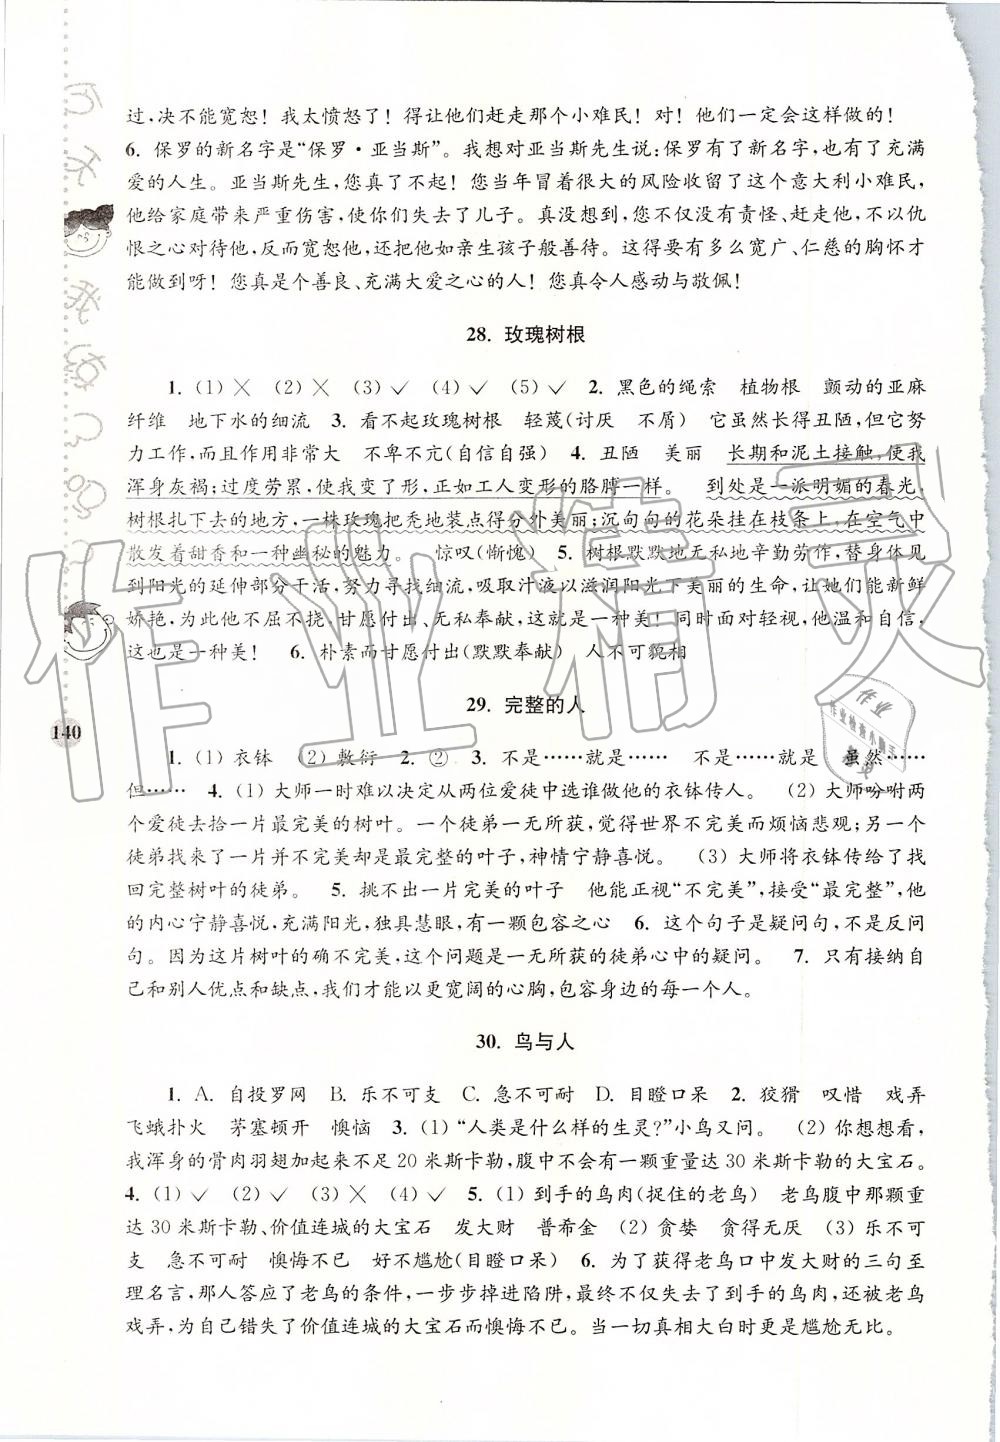 过,决不能宽恕！我太愤怒了！得让他们赶走那个小难民！对！他们一定会这样做的！
6. 保罗的新名字是“保罗·亚当斯”。我想对亚当斯先生说:保罗有了新名字,也有了充满
爱的人生。亚当斯先生,您真了不起！您当年冒着很大的风险收留了这个意大利小难民,
他给家庭带来严重伤害,使你们失去了儿子。真没想到,您不仅没有责怪、赶走他,不以仇
恨之心对待他,反而宽恕他,还把他如亲生孩子般善待。这得要有多么宽广、仁慈的胸怀才
能做到呀！您真是个善良、充满大爱之心的人！您真令人感动与敬佩！
28. 玫瑰树根
1. (1) ╳ (2) ╳ (3) ✓ (4) ✓ (5) ✓ 2. 黑色的绳索 植物根 颤动的亚麻
纤维 地下水的细流 3. 看不起玫瑰树根 轻蔑(讨厌 不屑) 它虽然长得丑陋,但它努
力工作,而且作用非常大 不卑不亢(自信自强) 4. 丑陋 美丽 长期和泥土接触,使我
浑身灰褐;过度劳累,使我变了形,正如工人变形的胳膊一样。 到处是一派明媚的春光,
树根扎下去的地方,一株玫瑰把秃地装点得分外美丽;沉甸甸的花朵挂在枝条上,在空气中
散发着甜香和一种幽秘的魅力。 惊叹(惭愧) 5. 树根默默地无私地辛勤劳作,替身体见
到阳光的延伸部分干活,努力寻找细流,吸取汁液以滋润阳光下美丽的生命,让她们能新鲜
娇艳,为此他不屈不挠,甘愿付出、无私奉献,这是一种美！同时面对轻视,他温和自信,
这也是一种美！ 6. 朴素而甘愿付出(默默奉献) 人不可貌相
29. 完整的人
140
1. (1) 衣钵 (2) 敷衍 2. ② 3. 不是……就是…… 不是……就是 虽然……
但…… 4. (1) 大师一时难以决定从两位爱徒中选谁做他的衣钵传人。 (2) 大师吩咐两
个爱徒去拾一片最完美的树叶。一个徒弟一无所获,觉得世界不完美而烦恼悲观;另一个
徒弟找来了一片并不完美却是最完整的叶子,神情宁静喜悦。 (3) 大师将衣钵传给了找
回完整树叶的徒弟。 5. 挑不出一片完美的叶子 他能正视“不完美”,接受“最完整”,他
的内心宁静喜悦,充满阳光,独具慧眼,有一颗包容之心 6. 这个句子是疑问句,不是反问
句。因为这片树叶的确不完美,这个问题是一无所获的徒弟心中的疑问。 7. 只有接纳自
己和别人优点和缺点,我们才能以更宽阔的心胸,包容身边的每一个人。
30. 鸟与人
1. A. 自投罗网 B. 乐不可支 C. 急不可耐 D. 目瞪口呆 2. 狡猾 叹惜 戏弄
飞蛾扑火 茅塞顿开 懊恼 3. (1) “人类是什么样的生灵?”小鸟又问。 (2) 你想想看,
我浑身的骨肉羽翅加起来不足 20 米斯卡勒,腹中不会有一颗重量达 30 米斯卡勒的大宝石。
4. (1) ✓ (2) ✓ (3) ╳ (4) ✓ 5. (1) 到手的鸟肉(捉住的老鸟) 老鸟腹中那颗重
达 30 米斯卡勒、价值连城的大宝石 发大财 普希金 (2) 贪婪 贪得无厌 (3) 乐不可
支 急不可耐 懊悔不已 好不尴尬(目瞪口呆) 6. 为了获得老鸟口中发大财的三句至
理名言,那人答应了老鸟的条件,一步步掉进陷阱,最终不仅失去了到手的鸟肉,还被老鸟
戏弄,为自己错失了价值连城的大宝石而懊悔不已。当一切真相大白时更是尴尬无比。
作业精灵
作业
作业检查小助手